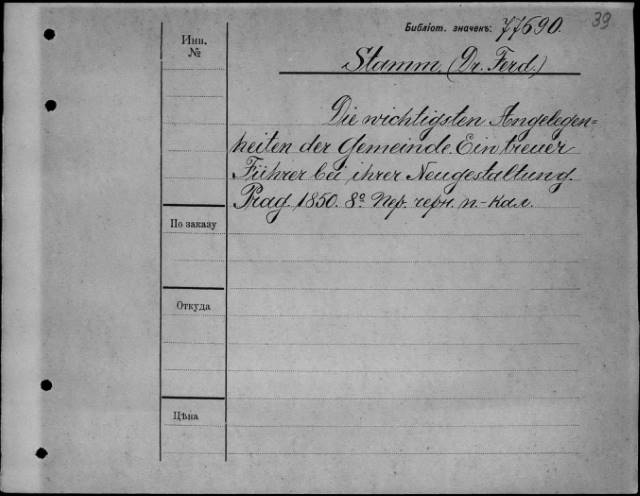 39
Библіот. значекъ: 77690.
Инв.
№
Stamm, (Dr. Ferd.)
Die wichtigsten Angelegen=
heiten der Gemeinde. Ein treuer
Führer bei ihrer Neugestaltung.
Prag 1850. 8º. Пер. черн. п.-кал.
По заказу
Откуда
Цѣна